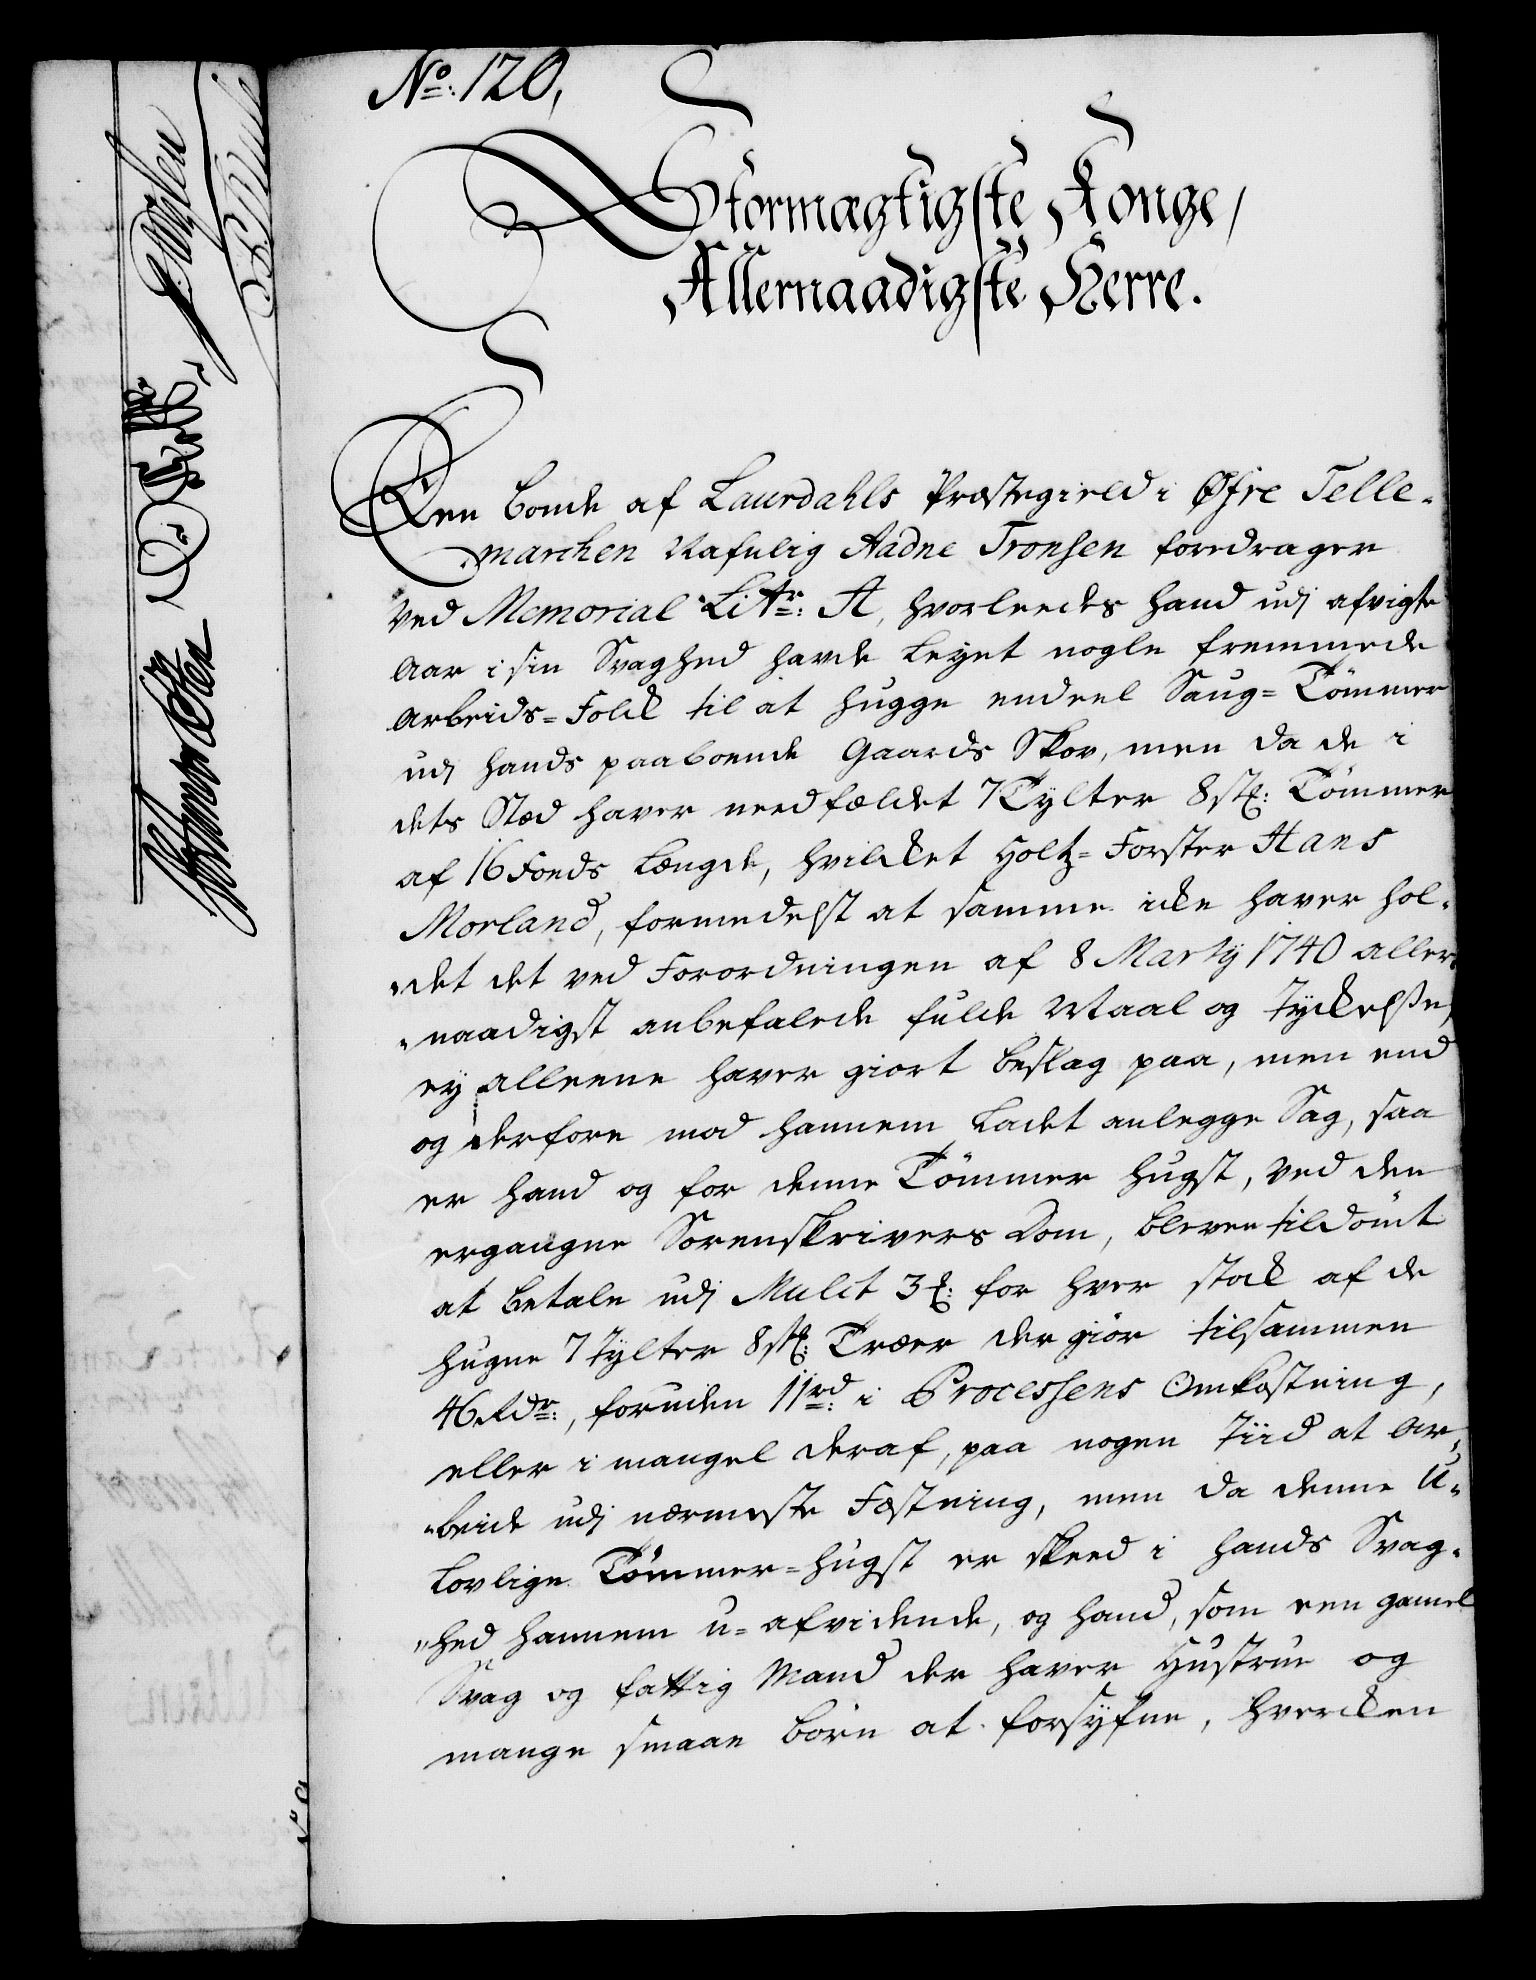 No: 120,
Stormægtigste Konge,
Allernaadigste Herre.
Een bonde af Laurdahls Præstegield i Øfre Telle-
marchen Nafnlig Aadne Tronsen foredrager
ved Memorial Litr: A, hvorleedes hand udj afvigte
Aar i sin Svaghed havde leyet nogle fremmede
Arbeids-Folck til at hugge endeel Saug-Tømmer
udj hands paaboende Gaards Skov, men da de i
dets Stæd haver needfældet 7 Tylter 8 stk: Tømmer
af 16 Foeds Længde, hvilcket Holtz-Forster Hans
Morland, formedelst at samme icke haver hol-
det det ved Forordningen af 8 Marty 1740 aller-
naadigst anbefalede fulde Maal og Tyckelse,
ey alleene haver giort beslag paa, men end
og derfore mod hannem Ladet anlegge Sag, saa
er hand og for denne Tømmer hugst, ved den
ergangne Sorenskrivers Dom, bleven tildømt
at betale udj Mulct 3 : for hver stock af de
hugne 7 Tylter 8 stk: Træer der giør tilsammen
46 Rdr:, foruden 11 rd: i Processens Omkostning,
eller i mangel deraf, paa nogen Tiid at Ar-
beide udj nærmeste Fæstning, men da denne U-
lovlige Tømmer-hugst er skeed i hands Svag-
hed hannem u-afvidende, og hand, som een gamel
Svag og fattig Mand der haver Hustrue og
mange smaae børn at forsyfne, hvercken